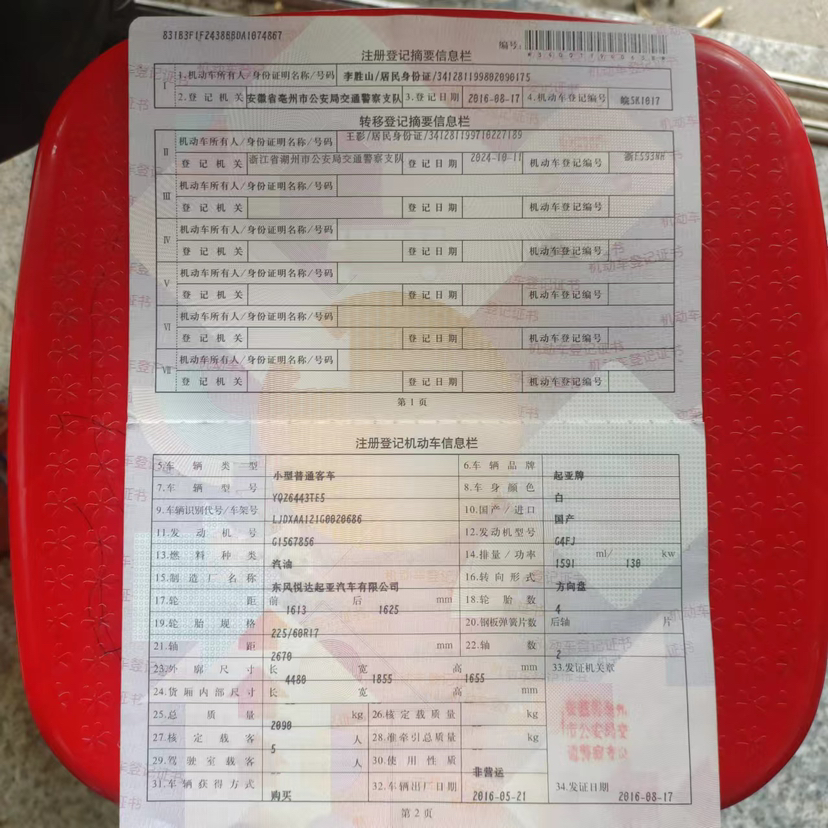 831B3F1F24386BDA1074867
编号:
注册登记摘要信息栏
I 1.机动车所有人/身份证明名称/号码 李胜山/居民身份证/341281199802090175
2.登记机关 安徽省亳州市公安局交通警察支队 3.登记日期 2016-08-17 4.机动车登记编号 皖SK1017
转移登记摘要信息栏
II 机动车所有人/身份证明名称/号码 王影/居民身份证/341281199710227189
登记机关 浙江省湖州市公安局交通警察支队 登记日期 2024-10-11 机动车登记编号 浙E593NH
III 机动车所有人/身份证明名称/号码
登记机关 登记日期 机动车登记编号
IV 机动车所有人/身份证明名称/号码
登记机关 登记日期 机动车登记编号
V 机动车所有人/身份证明名称/号码
登记机关 登记日期 机动车登记编号
VI 机动车所有人/身份证明名称/号码
登记机关 登记日期 机动车登记编号
VII 机动车所有人/身份证明名称/号码
登记机关 登记日期 机动车登记编号
第1页
注册登记机动车信息栏
5.车辆类型 小型普通客车 6.车辆品牌 起亚牌
7.车辆型号 YQZ6443TE5 8.车身颜色 白
9.车辆识别代号/车架号 LJDXAA121G0020686 10.国产/进口 国产
11.发动机号 G1567856 12.发动机型号 G4FJ
13.燃料种类 汽油 14.排量/功率 1591 ml/ 130 kw
15.制造厂名称 东风悦达起亚汽车有限公司 16.转向形式 方向盘
17.轮距 前 1613 后 1625 mm 18.轮胎数 4
19.轮胎规格 225/60R17 20.钢板弹簧片数 后轴 片
21.轴距 2670 mm 22.轴数 2
23.外廓尺寸 长 4480 宽 1855 高 1655 mm 33.发证机关章
24.货厢内部尺寸 长 宽 高 mm
25.总质量 2090 kg 26.核定载质量 -- kg
27.核定载客 5 人 28.准牵引总质量 -- kg
29.驾驶室载客 -- 人 30.使用性质 非营运
31.车辆获得方式 购买 32.车辆出厂日期 2016-05-21 34.发证日期 2016-08-17
第2页